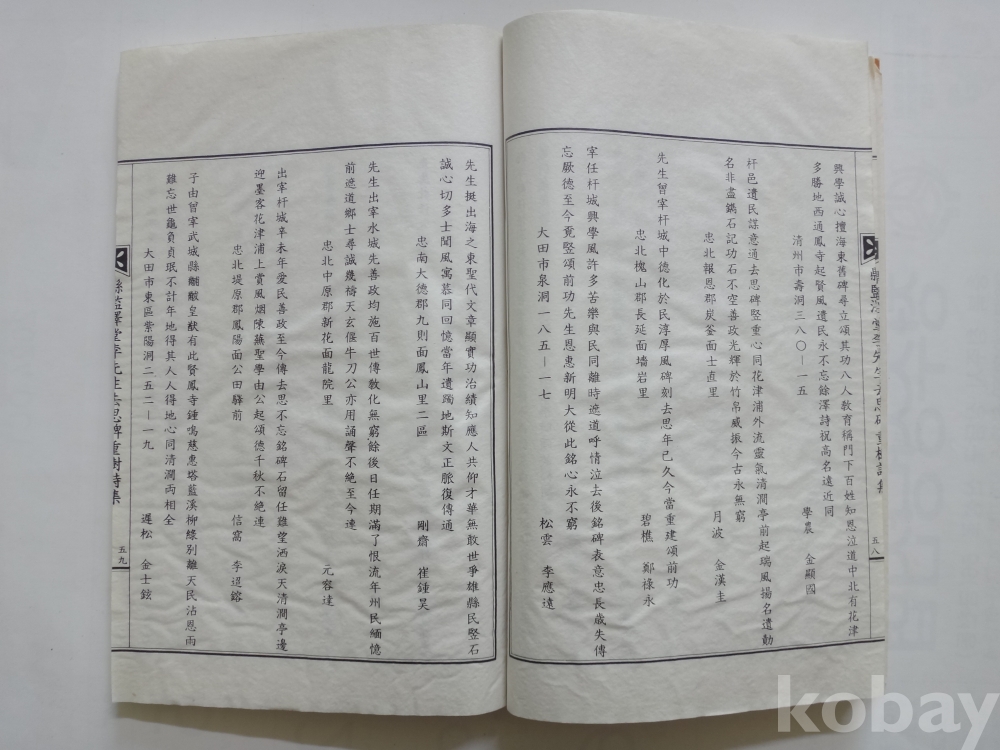 興學誠心擅海東舊碑尋立頌其功八人敎育稱門下百姓知恩泣道中北有花津
多勝地西通鳳寺起賢風遺民永不忘餘澤詩祝高名遠近同
清州市壽洞三八〇ー一五
學農 金顯國
杆邑遺民謀意通去思碑竪重心同花津浦外流靈氣清澗亭前起瑞風揚名遺勳
名非盡鐫石記功石不空善政光輝於竹帛威振今古永無窮
忠北報恩郡炭釜面士直里
月波 金漢圭
先生曾宰杆城中德化於民淳厚風碑刻去思年已久今當重建頌前功
忠北槐山郡長延面墻岩里
碧樵 鄭祿永
宰任杆城興學風許多苦樂與民同離時遮道呼情泣去後銘碑表意忠長歲失傳
忘厥德至今竟竪頌前功先生恩惠新明大從此銘心永不窮
大田市泉洞一八五ー一七
松雲 李應遠
五八
先生挺出海之東聖代文章顯實功治績知應人共仰才華無敢世爭雄縣民竪石
誠心切多士聞風寓慕同回憶當年遺躅地斯文正脈復傳通
忠南大德郡九則面鳳山里二區
剛齋 崔鍾昊
先生出宰水城先善政均施百世傳敎化無窮餘後日任期滿了恨流年州民緬憶
前遮道鄕士尋誠幾禱天玄偃牛刀公亦用誦聲不絶至今連
忠北中原郡新花面龍院里
元容達
出宰杆城辛未年愛民善政至今傳去思不忘銘碑石留任難望洒淚天清澗亭邊
迎墨客花津浦上賞風烟陳蕪聖學由公起頌德千秋不絶連
忠北堤原郡鳳陽面公田驛前
信窩 李退鎔
子由曾宰武城縣翩黻皇猷有此賢鳳寺鍾鳴慈惠塔藍溪柳綠別離天民沾恩雨
難忘世龜負貞珉不計年地得其人人得地心同清澗兩相全
大田市東區紫陽洞二五二ー一九
遲松 金士鉉
縣監澤堂李先生去思碑重樹詩集
五九
kobay